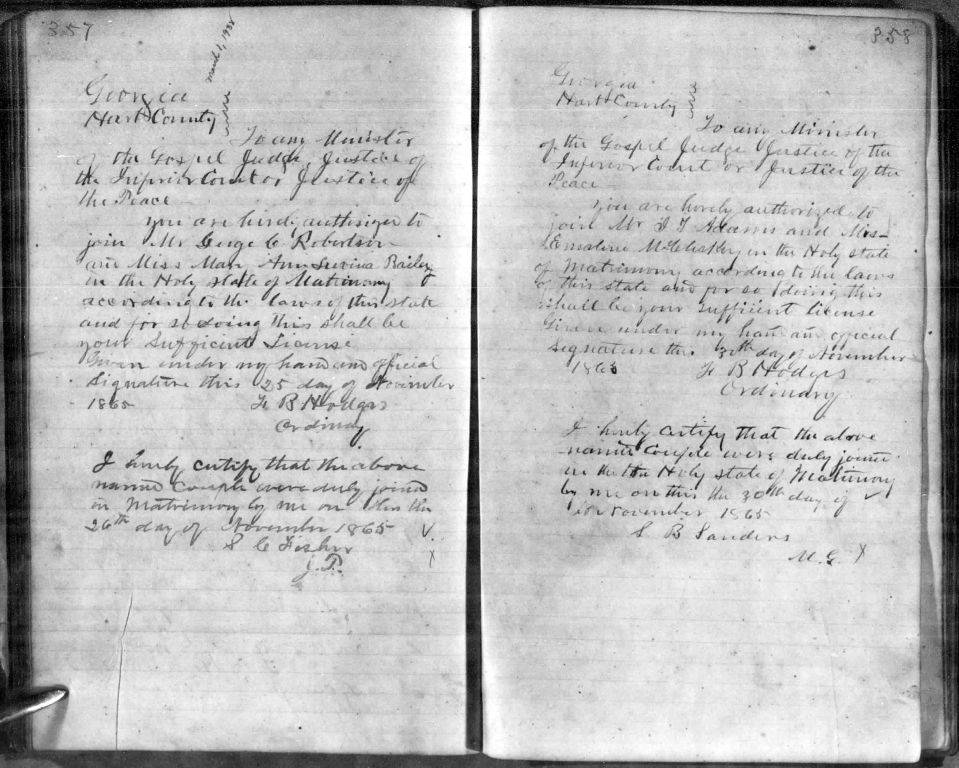 357
Georgia
Hart County
To any Minister
of the Gospel Judge, Justice of
the Inferior Court or Justice of
the Peace
you are hirdy authosiged to
join Mr George C. Robertson
an Miss Mary Ann Bailey
in the Holy state of Matimony
according to the laws of this state
and for so doing this shall be
your Sufficent License
Given under my hand and official
Signature this 25 day of November
1865 F. B Hodges
Ordinary
I hereby certify that the above
named Couple were duly joined
in Matrimony by me on this the
26th day of November 1865
S C Fisher
J.P.
358
Georgia
Hart County
To any Minister
of the Gospel Judge Justice of the
Inferior Court or Justice of the
Peace
you are hereby authorized to
join Mr J T Adams and Miss
in the Holy state
of Matrimony according to the laws
of this state and for so doing this
shall be your Sufficient License
Given under my han an official
signature the 30th day of November
1865 F. B Hodges
Ordinary
I hereby certify that the above
named Couple were duly joined
in the the Holy state of Matimony
by me on this the 30th day of
November 1865
S B Sanders
M.G. X